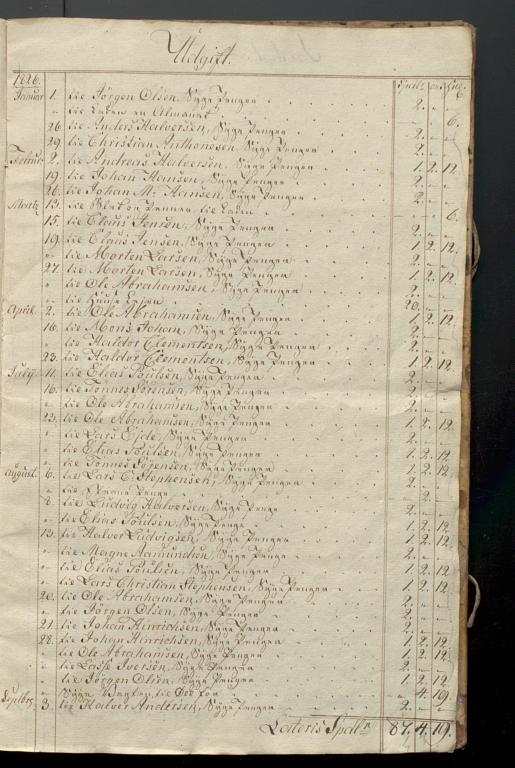 Udgift.
1826. Spdlr. ort. Sk.
Januar 1. til Jörgen Olsen, Syge Penger 2. „ „
„ til Laden en Almanak „ „ 6.
26. til Anders Halversen, Syge Penger 2. „ „
29. til Christian Anthonesen Syge Penger 2. „ „
Februar 2. til Andreas Halversen, Syge Penger 1. 2. 12.
19. til Johan Hansen, Syge Penger 2. „ „
26. til Johan M. Hansen, Syge Penger 2. „ „
Martz 13. til Penner til Laden „ „ 6.
15. til Claus Jensen, Syge Penger 2. „ „
19. til Claus Jensen, Syge Penger 1. 2. 12.
„ til Morten Larsen, Syge Penger 2. „ „
27. til Morten Larsen, Syge Penger 1. 2. 12.
„ til Ole Abrahamsen, Syge Penger 2. „ „
„ til Huuse Leien 20. „ „
April 2. til Ole Abrahamsen, Syge Penger 1. 2. 12.
16. til Mons Johan, Syge Penger 2. „ „
„ til Haldor Clementsen, Syge Penger 2. „ „
23. til Haldor Clementsen, Syge Penger 1. 2. 12.
July 11. til Elias Poulsen, Syge Penger 2. „ „
16. til Tönnes Sörensen, Syge Penger 2. „ „
„ til Ole Abrahamsen, Syge Penger 2. „ „
23. til Ole Abrahamsen, Syge Penger 1. 2. 12.
„ til Lars Eide, Syge Penger 2. „ „
„ til Elias Poulsen, Syge Penger 1. 2. 12.
„ til Tönnes Sörensen, Syge Penger 1. 2. 12.
August. 6. til Lars C. Stephensen, Syge Penger 2. „ „
„ til Penge 2. „
8. til Ludvig Halversen, Syge Penger 2. „ „
„ til Elias Poulsen, Syge Penge 1. 2. 12.
13. til Halver Ludvigsen, Syge Penger 1. 2. 12.
„ til Magne Aamundsen, Syge Penger 2. „ „
„ til Elias Poulsen, Syge Penger 1. 2. 12.
„ til Lars Christian Stephensen, Syge Penger 1. 2. 12.
20. til Ole Abrahamsen, Syge Penger 2. „ „
„ til Jörgen Olsen, Syge Penger 2. „ „
21. til Johan Hinrichsen, Syge Penger 2. „ „
28. til Johan Hinrichsen, Syge Penger 1. 2. 12.
„ til Ole Abrahamsen, Syge Penger 1. 2. 12.
„ til Lasse Iversen, Syge Penger 2. „ „
„ til Jörgen Olsen, Syge Penger 1. 2. 12.
„ til „ 4. 19.
Septbr. 3. til Halver Andersen, Syge Penger 2. „ „
Lateris Spdlr 87. 4. 19.